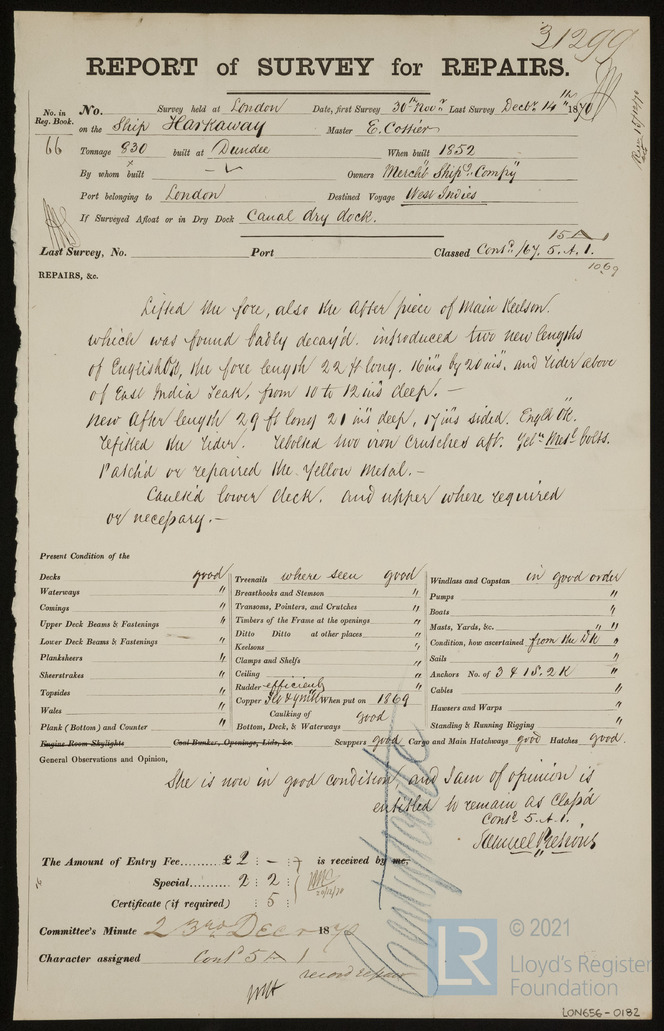 31299
REPORT of SURVEY for REPAIRS.
No. in Reg. Book. No. Survey held at London Date, first Survey 30th Novr Last Survey Decbr 14th 1870
66 on the Ship Harkaway Master E. Cossier
Tonnage 830 built at Dundee When built 1852
By whom built Owners Mercht Shipg Compy
Port belonging to London Destined Voyage West Indies
If Surveyed Afloat or in Dry Dock Canal dry dock.
15 A 1
Last Survey, No. Port Classed Contd /67. 5. A. 1.
10,69
REPAIRS, &c.
Lifted the fore, also the After piece of Main Keelson.
which was found badly decay'd. introduced two new lengths
of English Ok, the fore length 22 ft long. 16 ins by 20 ins. and rider above
of East India Teak, from 10 to 12 ins deep. —
New After length 29 ft long 21 ins deep, 17 ins sided. Englh Ok.
refitted the rider. rebolted two iron Crutches aft. Yelw Metl bolts.
Patch'd or repaired the Yellow Metal. —
Caulk'd lower deck. and upper where required
or necessary. —
Present Condition of the
Decks good Treenails where seen good Windlass and Capstan in good order
Waterways " Breasthooks and Stemson " Pumps "
Comings " Transoms, Pointers, and Crutches " Boats "
Upper Deck Beams & Fastenings " Timbers of the Frame at the openings " Masts, Yards, &c. " "
Lower Deck Beams & Fastenings " Ditto Ditto at other places " Condition, how ascertained from the Dk "
Planksheers " Keelsons " Sails "
Sheerstrakes " Clamps and Shelfs " Anchors No. of 3 & 1 S. 2 K "
Topsides " Ceiling " Cables "
Wales " Rudder efficient Hawsers and Warps "
Plank (Bottom) and Counter " Copper When put on 1869 Standing & Running Rigging "
Caulking of Bottom, Deck, & Waterways good
Engine Room Skylights Coal Bunker, Openings, Lids, &c. Scuppers good Cargo and Main Hatchways good Hatches good.
General Observations and Opinion,
She is now in good condition, and I am of opinion is
entitled to remain as Class'd
Contd 5. A. 1.
The Amount of Entry Fee......... £ 2 : — : is received by me,
Special......... 2 : 2 :
Certificate (if required) : 5 :
20/12/70
Committee's Minute 23rd Decr 1870
Character assigned Contd 5 A 1
record repair
© 2021
LR Lloyd's Register
Foundation
LON656-0182